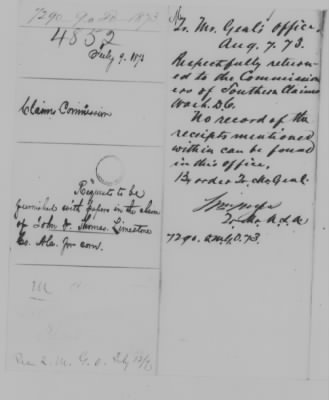 7290. Q.M.G.O. 1873
4852
July 9. 1873
Claims Commission
Requests to be
furnished with papers in the claim
of John H. Thomas. Limestone
Co. Ala. for corn.
M
Rec. Q. M. G. O. July
Qr. Mr. Genl's Office,
Aug. 7. 73.
Respectfully return-
ed to the Commission-
ers of Southern Claims
Wash. D.C.
No record of the
receipts mentioned
within can be found
in this office.
By order Qr. Mr. Genl.
Qr. Mr. U.S.A
7290. 73.